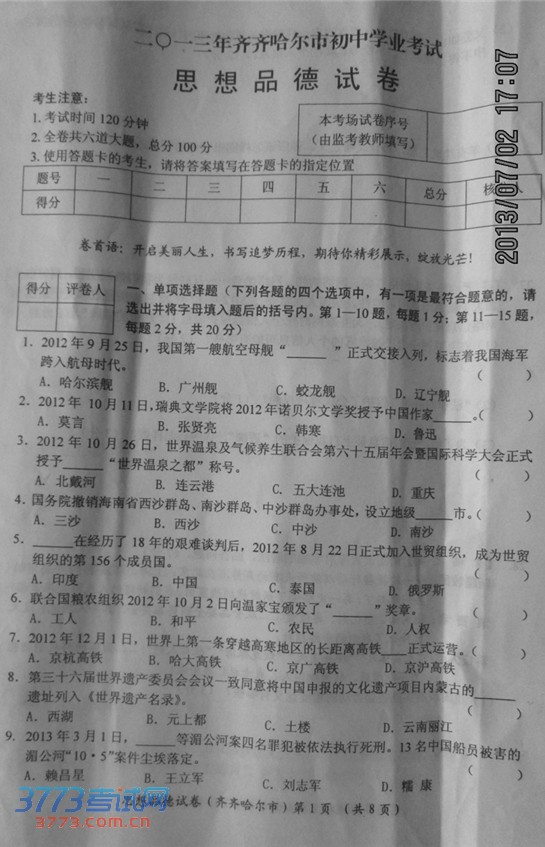 二〇一三年齐齐哈尔市初中学业考试
思想品德试卷
考生注意：
1. 考试时间 120 分钟
2. 全卷共六道大题，总分 100 分
3. 使用答题卡的考生，请将答案填写在答题卡的指定位置
本考场试卷序号
（由监考教师填写）
题号 一 二 三 四 五 六 总分 核 人
得分
卷首语：开启美丽人生，书写追梦历程，期待你精彩展示，绽放光芒！
得分 评卷人
一、单项选择题（下列各题的四个选项中，有一项是最符合题意的，请
选出并将字母填入题后的括号内。第 1—10 题，每题 1 分；第 11—15 题，
每题 2 分，共 20 分）
1．2012 年 9 月 25 日，我国第一艘航空母舰“______”正式交接入列，标志着我国海军
跨入航母时代。（ ）
A．哈尔滨舰 B．广州舰 C．蛟龙舰 D．辽宁舰
2．2012 年 10 月 11 日，瑞典文学院将 2012 年诺贝尔文学奖授予中国作家_____。（ ）
A．莫言 B．张贤亮 C．韩寒 D．鲁迅
3．2012 年 10 月 26 日，世界温泉及气候养生联合会第六十五届年会暨国际科学大会正式
授予______“世界温泉之都”称号。（ ）
A．北戴河 B．连云港 C．五大连池 D．重庆
4．国务院撤销海南省西沙群岛、南沙群岛、中沙群岛办事处，设立地级_____市。（ ）
A．三沙 B．西沙 C．中沙 D．南沙
5．______在经历了 18 年的艰难谈判后，2012 年 8 月 22 日正式加入世贸组织，成为世贸
组织的第 156 个成员国。（ ）
A．印度 B．中国 C．泰国 D．俄罗斯
6．联合国粮农组织 2012 年 10 月 2 日向温家宝颁发了“______”奖章。（ ）
A．工人 B．和平 C．农民 D．人权
7．2012 年 12 月 1 日，世界上第一条穿越高寒地区的长距离高铁____正式运营。（ ）
A．京杭高铁 B．哈大高铁 C．京广高铁 D．京沪高铁
8．第三十六届世界遗产委员会会议一致同意将中国申报的文化遗产项目内蒙古的______
遗址列入《世界遗产名录》。（ ）
A．西湖 B．元上都 C．土楼 D．云南丽江
9．2013 年 3 月 1 日，______等湄公河案四名罪犯被依法执行死刑。13 名中国船员被害的
湄公河“10·5”案件尘埃落定。（ ）
A．赖昌星 B．王立军 C．刘志军 D．糯 康
思想品德试卷（齐齐哈尔市）第 1 页 （共 8 页）
2013/07/02 17:07
3773考试网
3773.com.cn